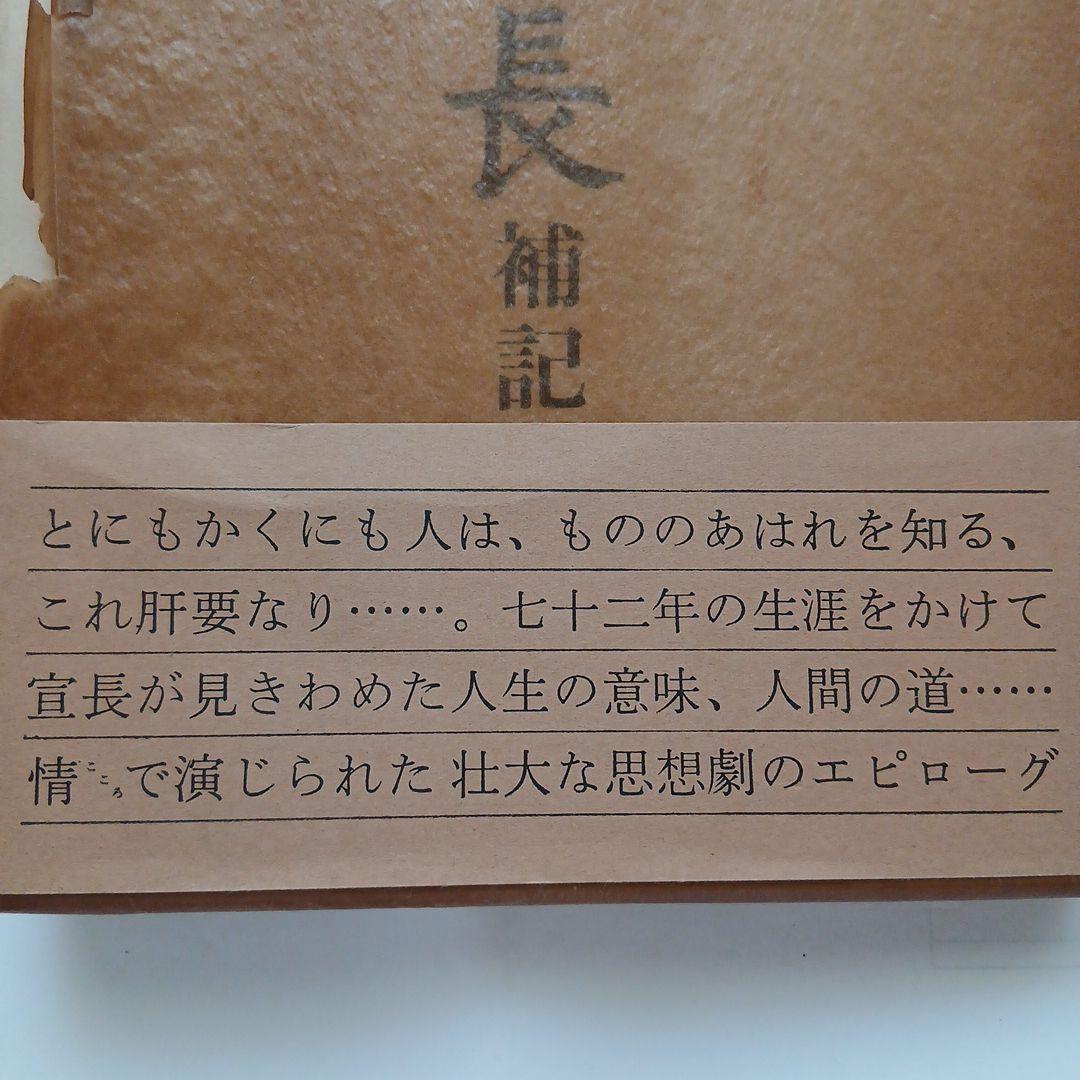 長
補記
とにもかくにも人は、もののあはれを知る、
これ肝要なり……。七十二年の生涯をかけて
宣長が見きわめた人生の意味、人間の道……
情こころで演じられた壮大な思想劇のエピローグ